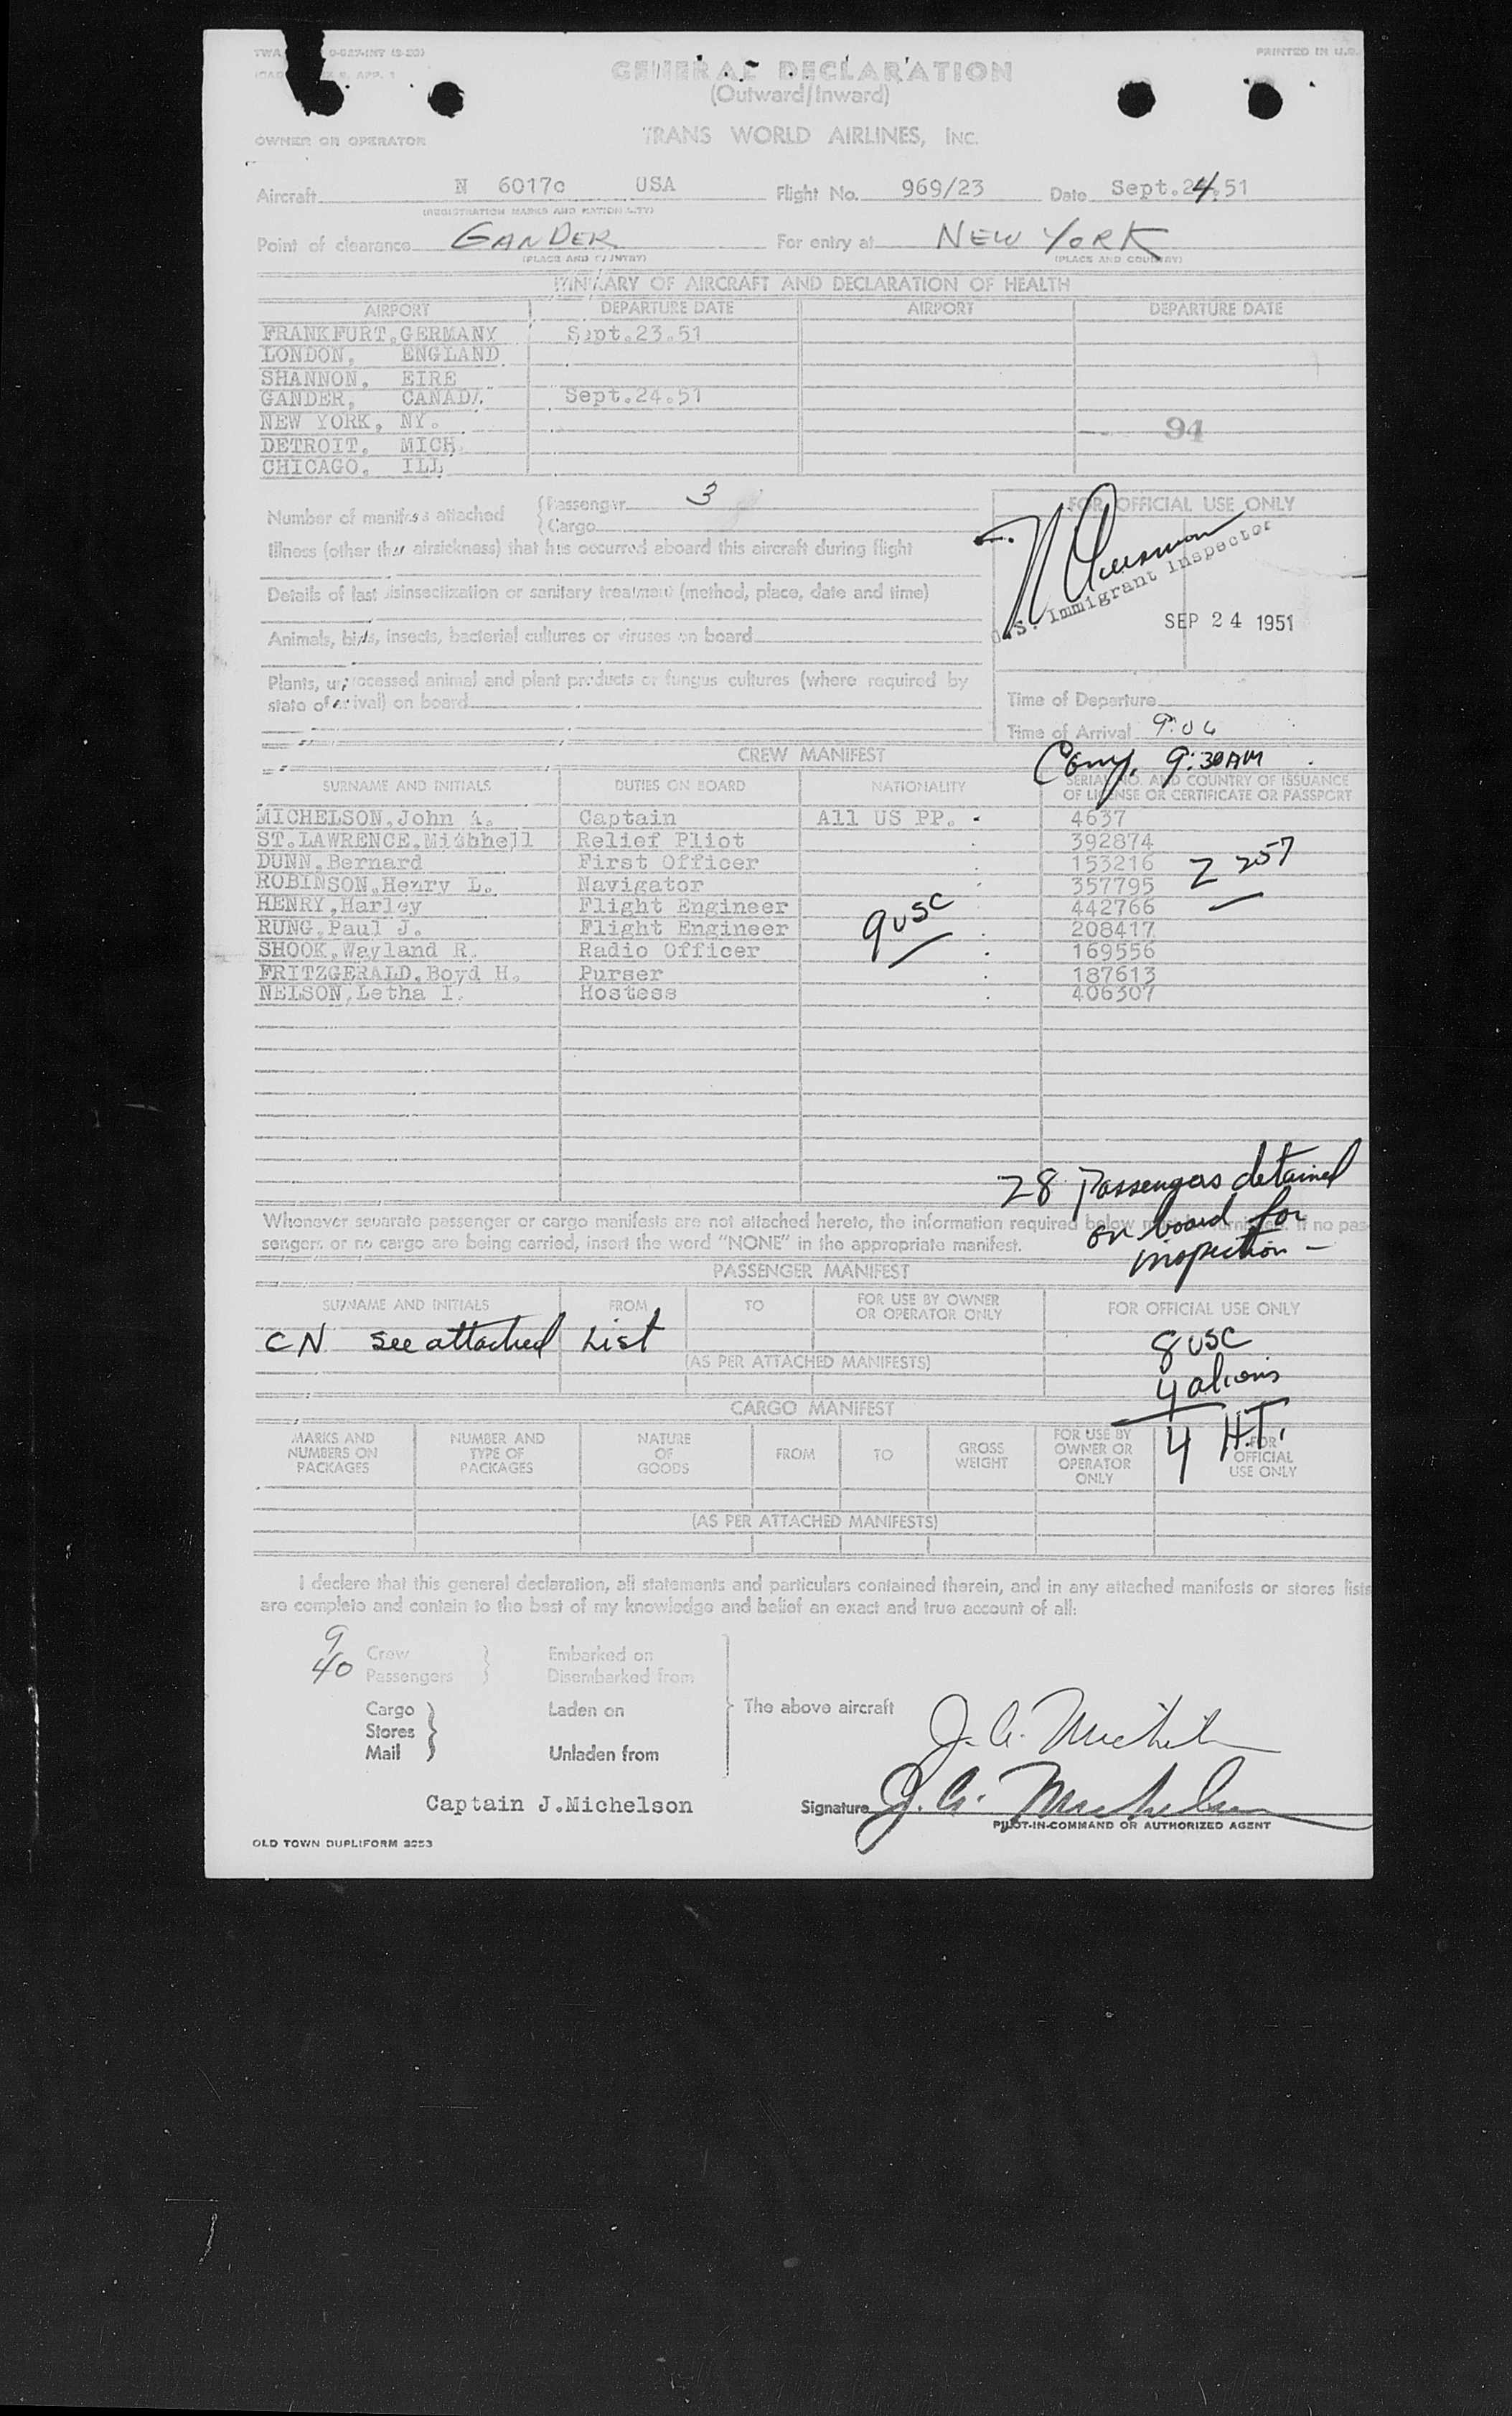 TWA 0-027-INT
PRINTED IN U.S.
GENERAL DECLARATION
(Outward/Inward)
OWNER OR OPERATOR TRANS WORLD AIRLINES, INC.
Aircraft N 6017c USA Flight No. 969/23 Date Sept.24.51
(REGISTRATION MARKS AND NATIONALITY)
Point of clearance GANDER For entry at NEW YORK
(PLACE AND COUNTRY) (PLACE AND COUNTRY)
ITINERARY OF AIRCRAFT AND DECLARATION OF HEALTH
AIRPORT DEPARTURE DATE AIRPORT DEPARTURE DATE
FRANKFURT,GERMANY Sept.23.51
LONDON, ENGLAND
SHANNON, EIRE
GANDER, CANADA Sept.24.51
NEW YORK, NY. 94
DETROIT, MICH.
CHICAGO, ILL
Number of manifests attached
Passenger 3
Cargo
FOR OFFICIAL USE ONLY
Illness (other than airsickness) that has occurred aboard this aircraft during flight
U.S. Immigrant Inspector
Details of last disinsectization or sanitary treatment (method, place, date and time)
SEP 24 1951
Animals, birds, insects, bacterial cultures or viruses on board
Plants, unprocessed animal and plant products or fungus cultures (where required by
state of arrival) on board
Time of Departure
Time of Arrival 9:06
CREW MANIFEST
9:30AM
SURNAME AND INITIALS DUTIES ON BOARD NATIONALITY SERIAL NO. AND COUNTRY OF ISSUANCE
OF LICENSE OR CERTIFICATE OR PASSPORT
MICHELSON,John A. Captain All US PP. 4637
ST.LAWRENCE.Mitbhell Relief Pliot 392874
DUNN.Bernard First Officer 153216
Z 257
ROBINSON,Henry L. Navigator 357795
HENRY,Harley Flight Engineer 442766
9 USC
RUNG,Paul J. Flight Engineer 208417
SHOOK,Wayland R. Radio Officer 169556
FRITZGERALD,Boyd H. Purser 187613
NELSON,Letha I. Hostess 406307
28 Passengers detained
on board for
inspection -
Whenever separate passenger or cargo manifests are not attached hereto, the information required below must be furnished. If no pas-
sengers or no cargo are being carried, insert the word "NONE" in the appropriate manifest.
PASSENGER MANIFEST
SURNAME AND INITIALS FROM TO FOR USE BY OWNER OR OPERATOR ONLY FOR OFFICIAL USE ONLY
CN see attached List
8 USC
(AS PER ATTACHED MANIFESTS)
4 aliens
4 H.T.
CARGO MANIFEST
MARKS AND NUMBERS ON PACKAGES NUMBER AND TYPE OF PACKAGES NATURE OF GOODS FROM TO GROSS WEIGHT FOR USE BY OWNER OR OPERATOR ONLY FOR OFFICIAL USE ONLY
(AS PER ATTACHED MANIFESTS)
I declare that this general declaration, all statements and particulars contained therein, and in any attached manifests or stores lists
are complete and contain to the best of my knowledge and belief an exact and true account of all:
9 Crew Embarked on
40 Passengers Disembarked from
Cargo Laden on The above aircraft
Stores
Mail Unladen from
J. A. Michelson
Captain J.Michelson Signature J. A. Michelson
PILOT-IN-COMMAND OR AUTHORIZED AGENT
OLD TOWN DUPLIFORM 3253